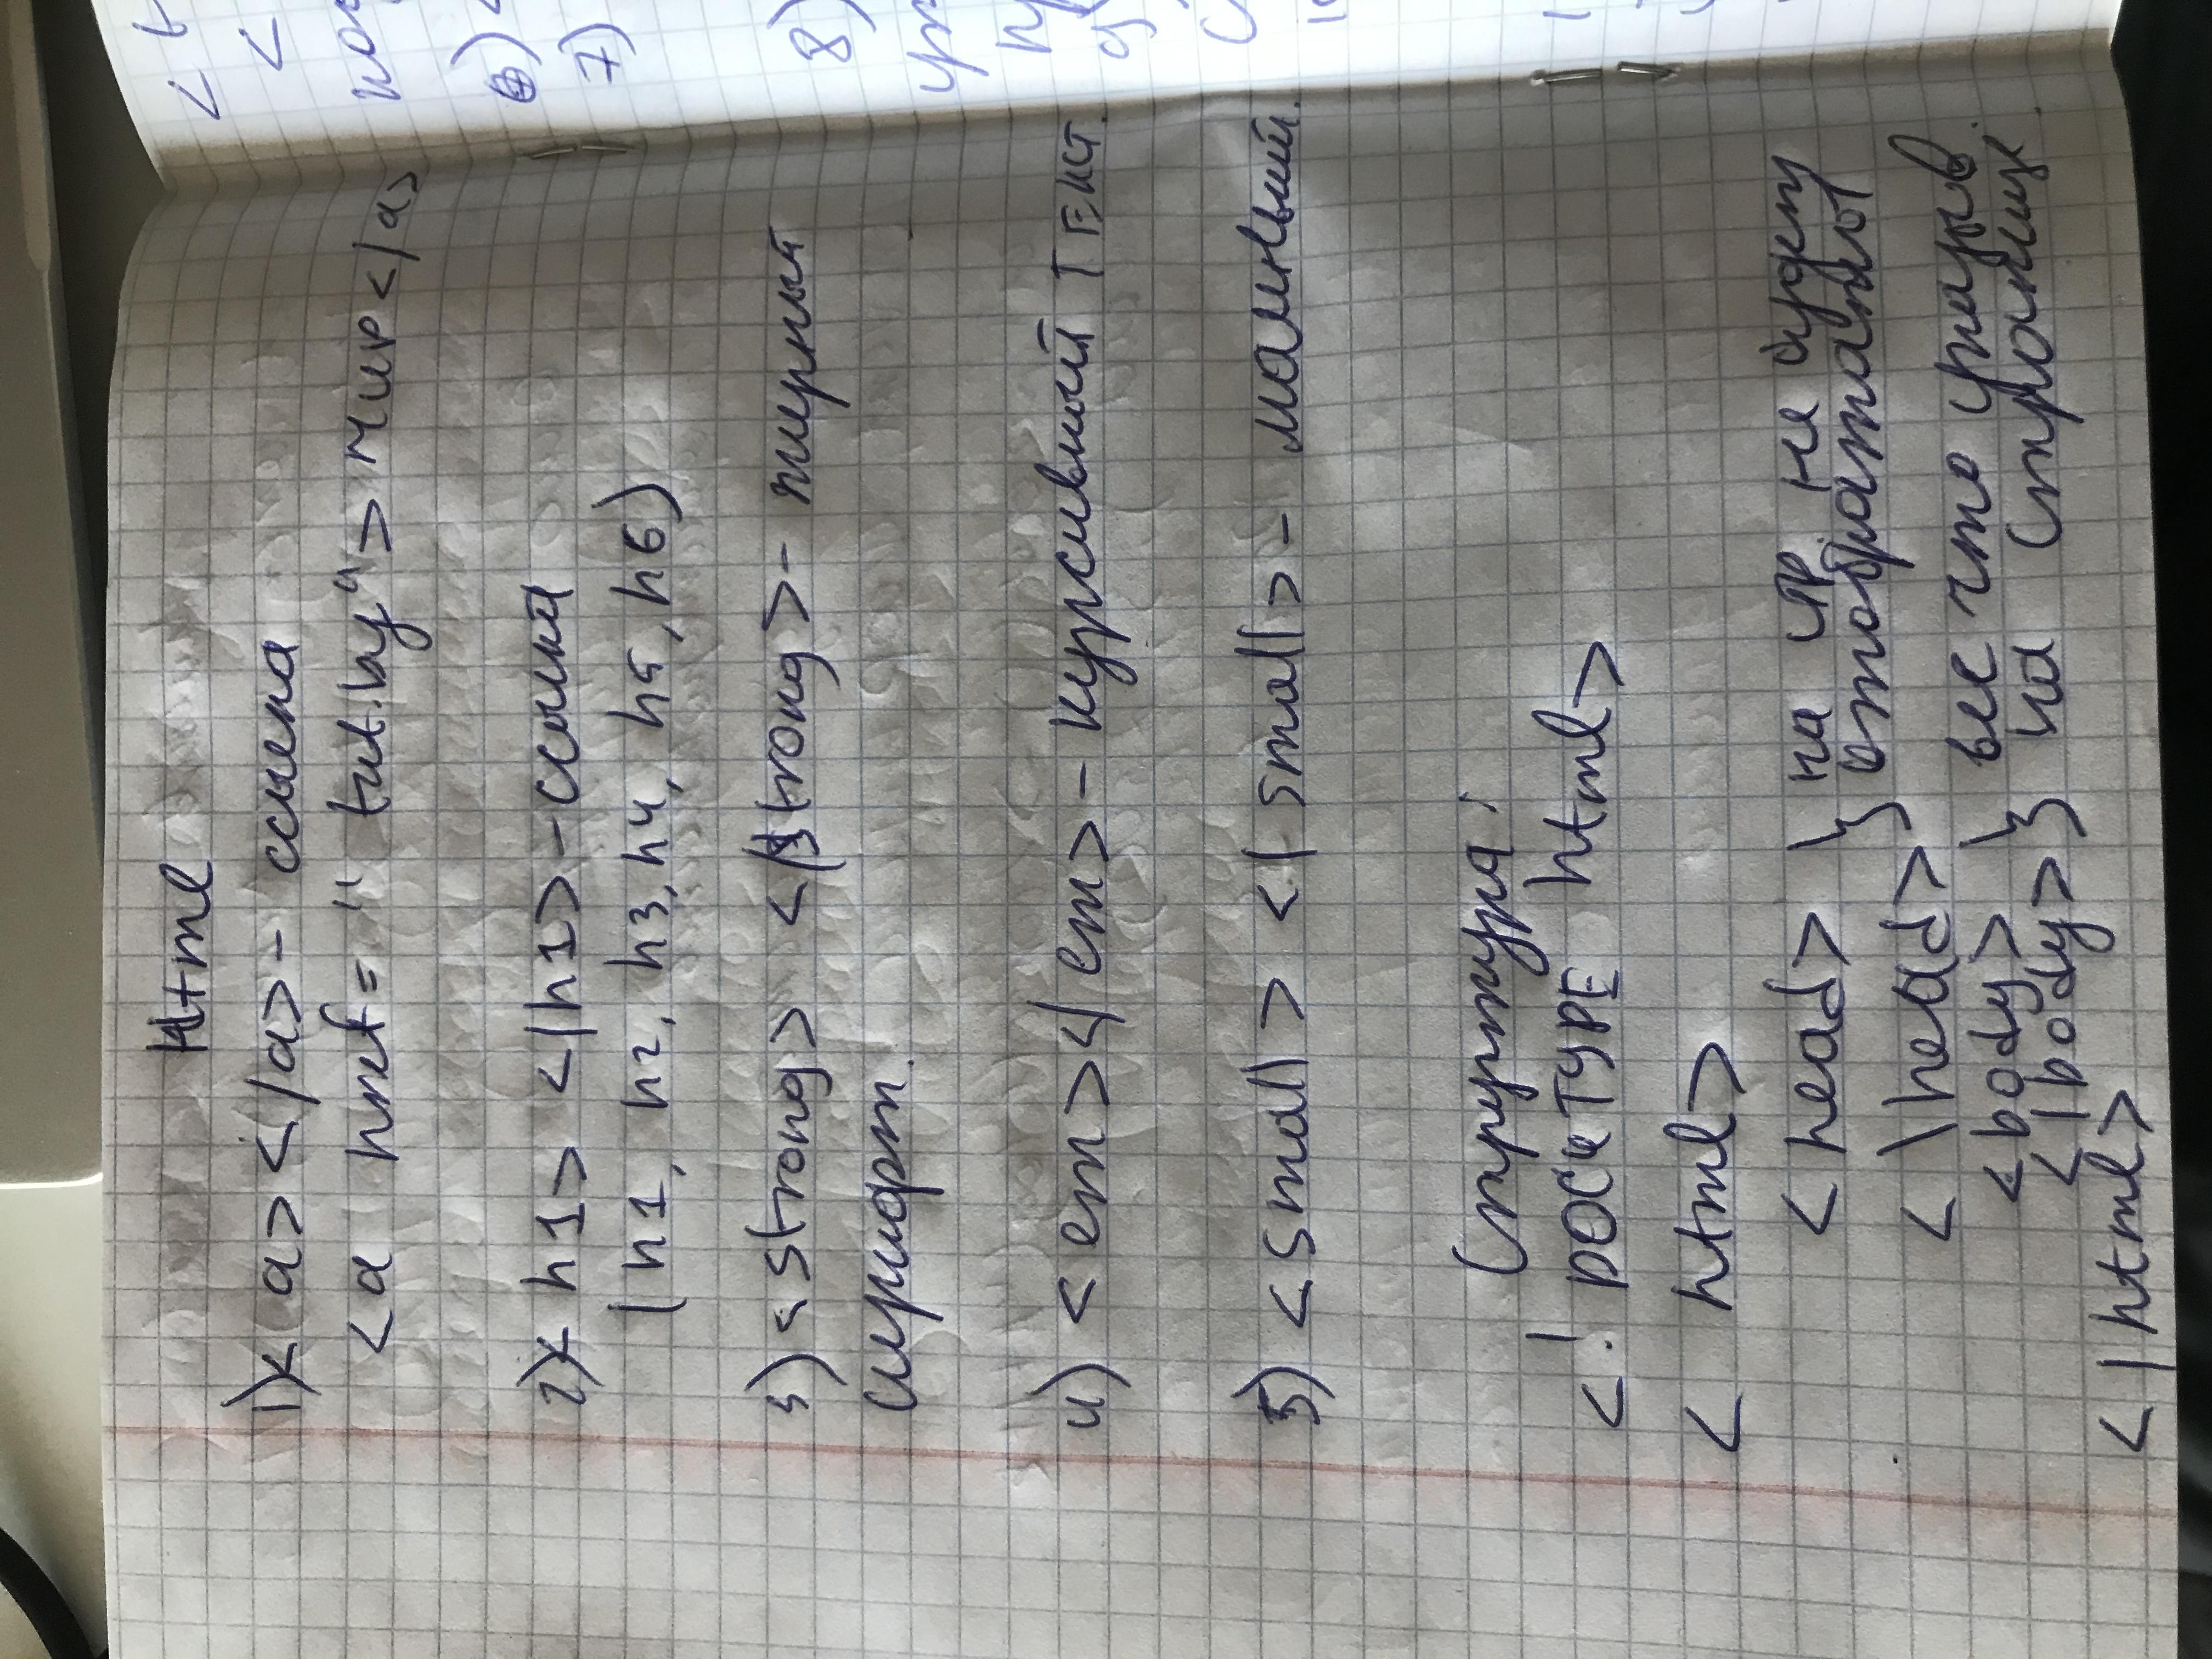 Html
1) < a> </a> - ссылка
<a href = " tut.by" > мир </a>
2) < h1> </h1> - ссылка
(h1, h2, h3, h4, h5, h6)
3) <strong> </strong> - жирный
шрифт.
4) <em> </em> - курсивный текст.
5) <small> </small> -
Структура:
<! DOCTYPE html>
< html>
<head> } на стр. не будет
отображаться
< \head>
<body> } все что указыв.
</body> на странице.
</html>
6)
7)
8)
9)